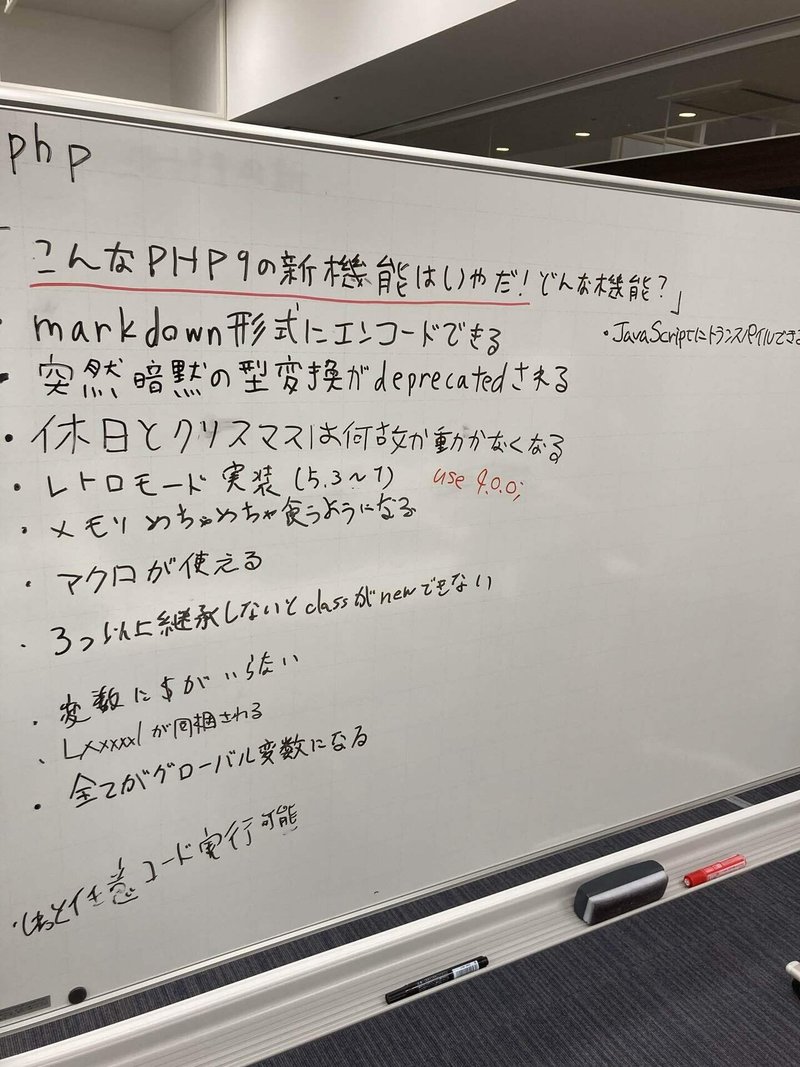 php
「こんなPHP9の新機能はいやだ!どんな機能?」
・markdown形式にエンコードできる
・JavaScriptにトランスパイルできる
・突然暗黙の型変換がdeprecatedされる
・休日とクリスマスは何故か動かなくなる
・レトロモード実装(5.3~7) use 4.0.0;
・メモリめちゃめちゃ食うようになる
・アクロが使える
・3つ以上継承しないとclassがnewできない
・変数に$がいらない
・Lxxxxxlが同梱される
・全てがグローバル変数になる
・しれっと任意コード実行可能